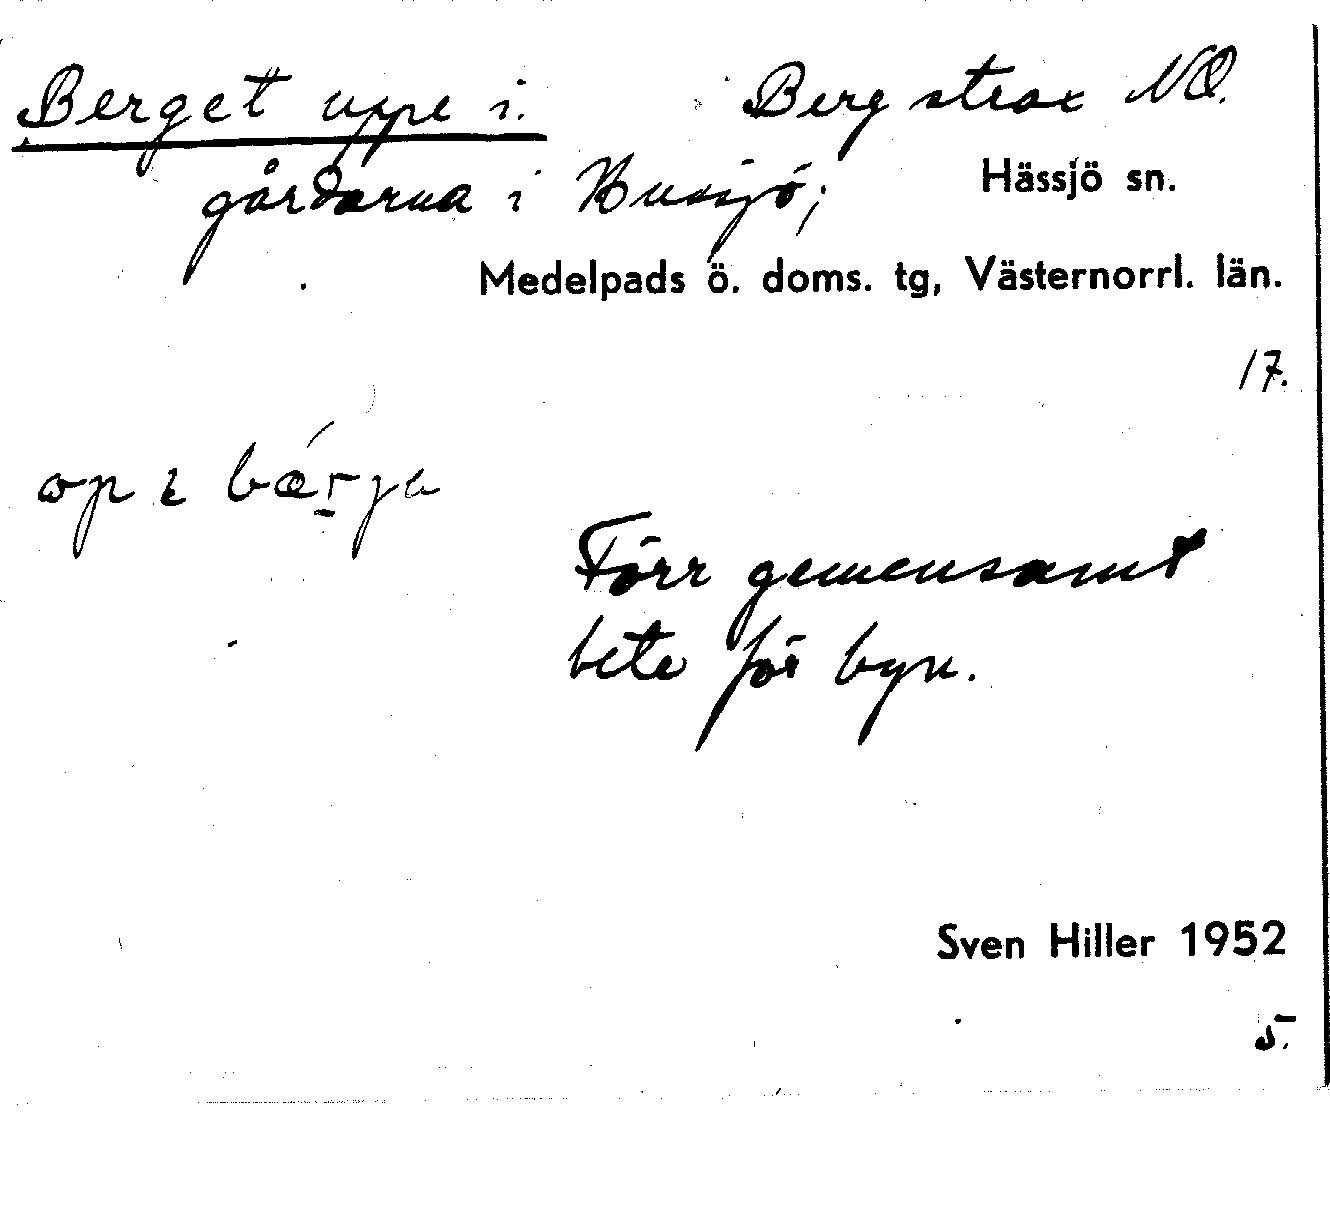 Berget uppe i. Berg strax NO.
gårdarna i Bussjö; Hässjö sn.
Medelpads ö. doms. tg, Västernorrl. län.
17.
op i bærja
Förr gemensamt
bete för byn.
Sven Hiller 1952
5.